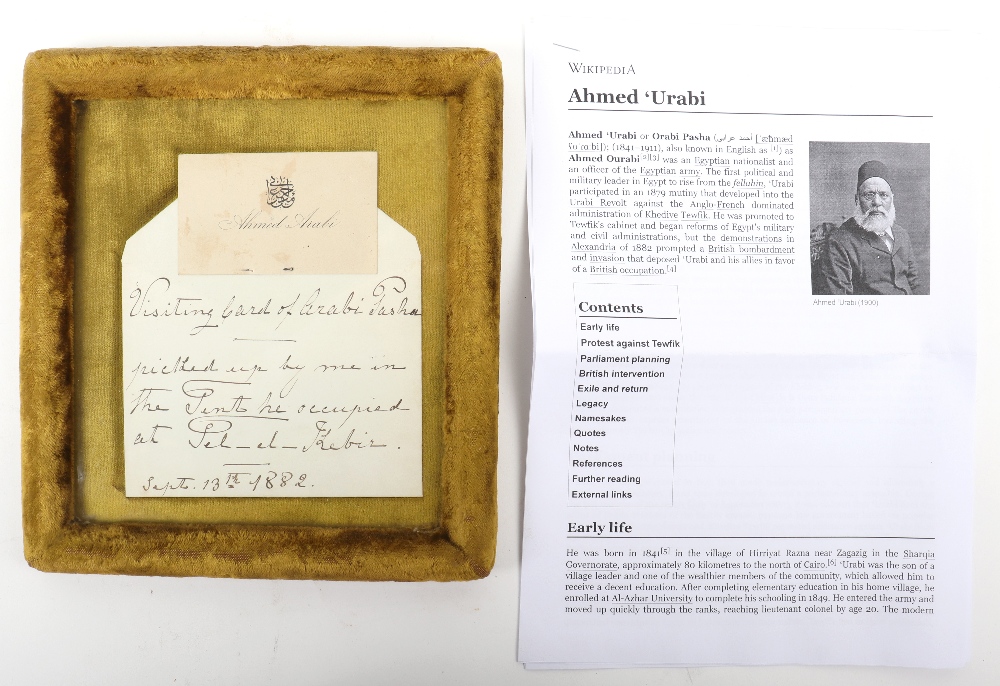 Ahmed Arabi
Visiting Card of Arabi Pasha
picked up by me in
the Tent he occupied
at Tel-el-Kebir.
Sept. 13th 1882.
WIKIPEDIA
Ahmed ʻUrabi
Ahmed ʻUrabi or Orabi Pasha (أحمد عرابي
(1841–1911), also known in English as [1]) as
Ahmed Ourabi [2][3] was an Egyptian nationalist and
an officer of the Egyptian army. The first political and
military leader in Egypt to rise from the fellahin, ʻUrabi
participated in an 1879 mutiny that developed into the
Urabi Revolt against the Anglo-French dominated
administration of Khedive Tewfik. He was promoted to
Tewfik's cabinet and began reforms of Egypt's military
and civil administrations, but the demonstrations in
Alexandria of 1882 prompted a British bombardment
and invasion that deposed ʻUrabi and his allies in favor
of a British occupation.[4]
Ahmed ʻUrabi (1906)
Contents
Early life
Protest against Tewfik
Parliament planning
British intervention
Exile and return
Legacy
Namesakes
Quotes
Notes
References
Further reading
External links
Early life
He was born in 1841[5] in the village of Hirriyat Razna near Zagazig in the Sharqia
Governorate, approximately 80 kilometres to the north of Cairo.[6] ʻUrabi was the son of a
village leader and one of the wealthier members of the community, which allowed him to
receive a decent education. After completing elementary education in his home village, he
enrolled at Al-Azhar University to complete his schooling in 1849. He entered the army and
moved up quickly through the ranks, reaching lieutenant colonel by age 20. The modern